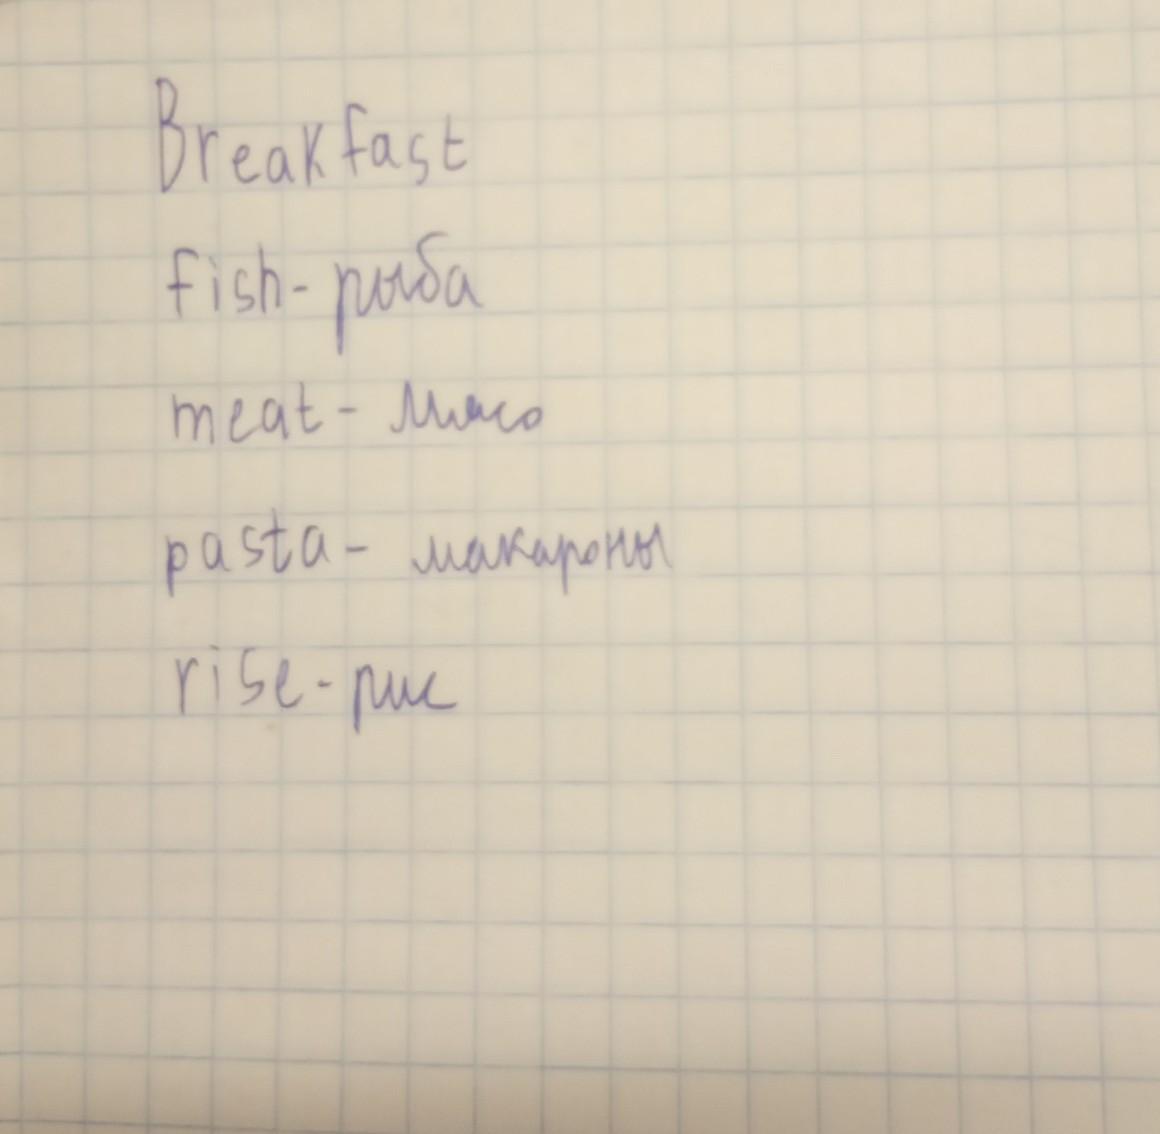 Breakfast
fish- рыба
meat- мясо
pasta- макароны
rise- рис